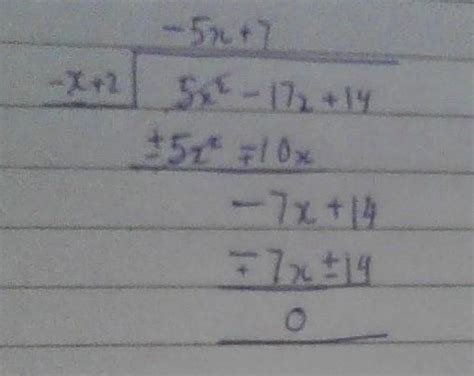 -5x+7
-x+2 5x² - 17x + 14
±5x² ∓10x
-7x + 14
∓7x ± 14
0